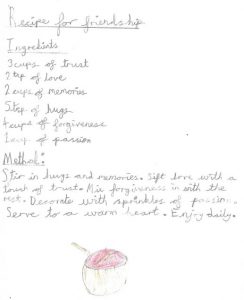 Recipe for friendship
Ingredients
3 cups of trust
2 tsp of love
2 cups of memories
5 tbsp of hugs
4 cups of forgiveness
1 cup of passion
Method:
Stir in hugs and memories. Sift love with a
touch of trust. Mix forgiveness in with the
rest. Decorate with sprinkles of passion.
Serve to a warm heart. Enjoy daily.